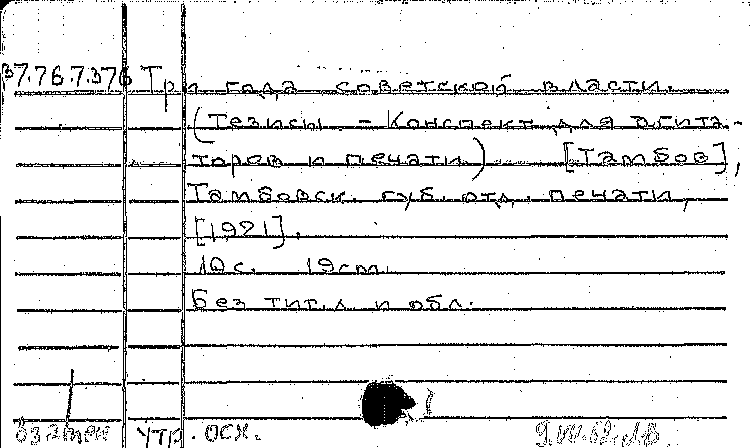 37.76.7.376 Три года советской власти.
(Тезисы - Конспект для агита-
торов и печати) [Тамбов],
Тамбовск. губ. отд. печати,
[1921].
10 с. 19 cm.
Без тит. л и обл.
Взамен утр. осн.